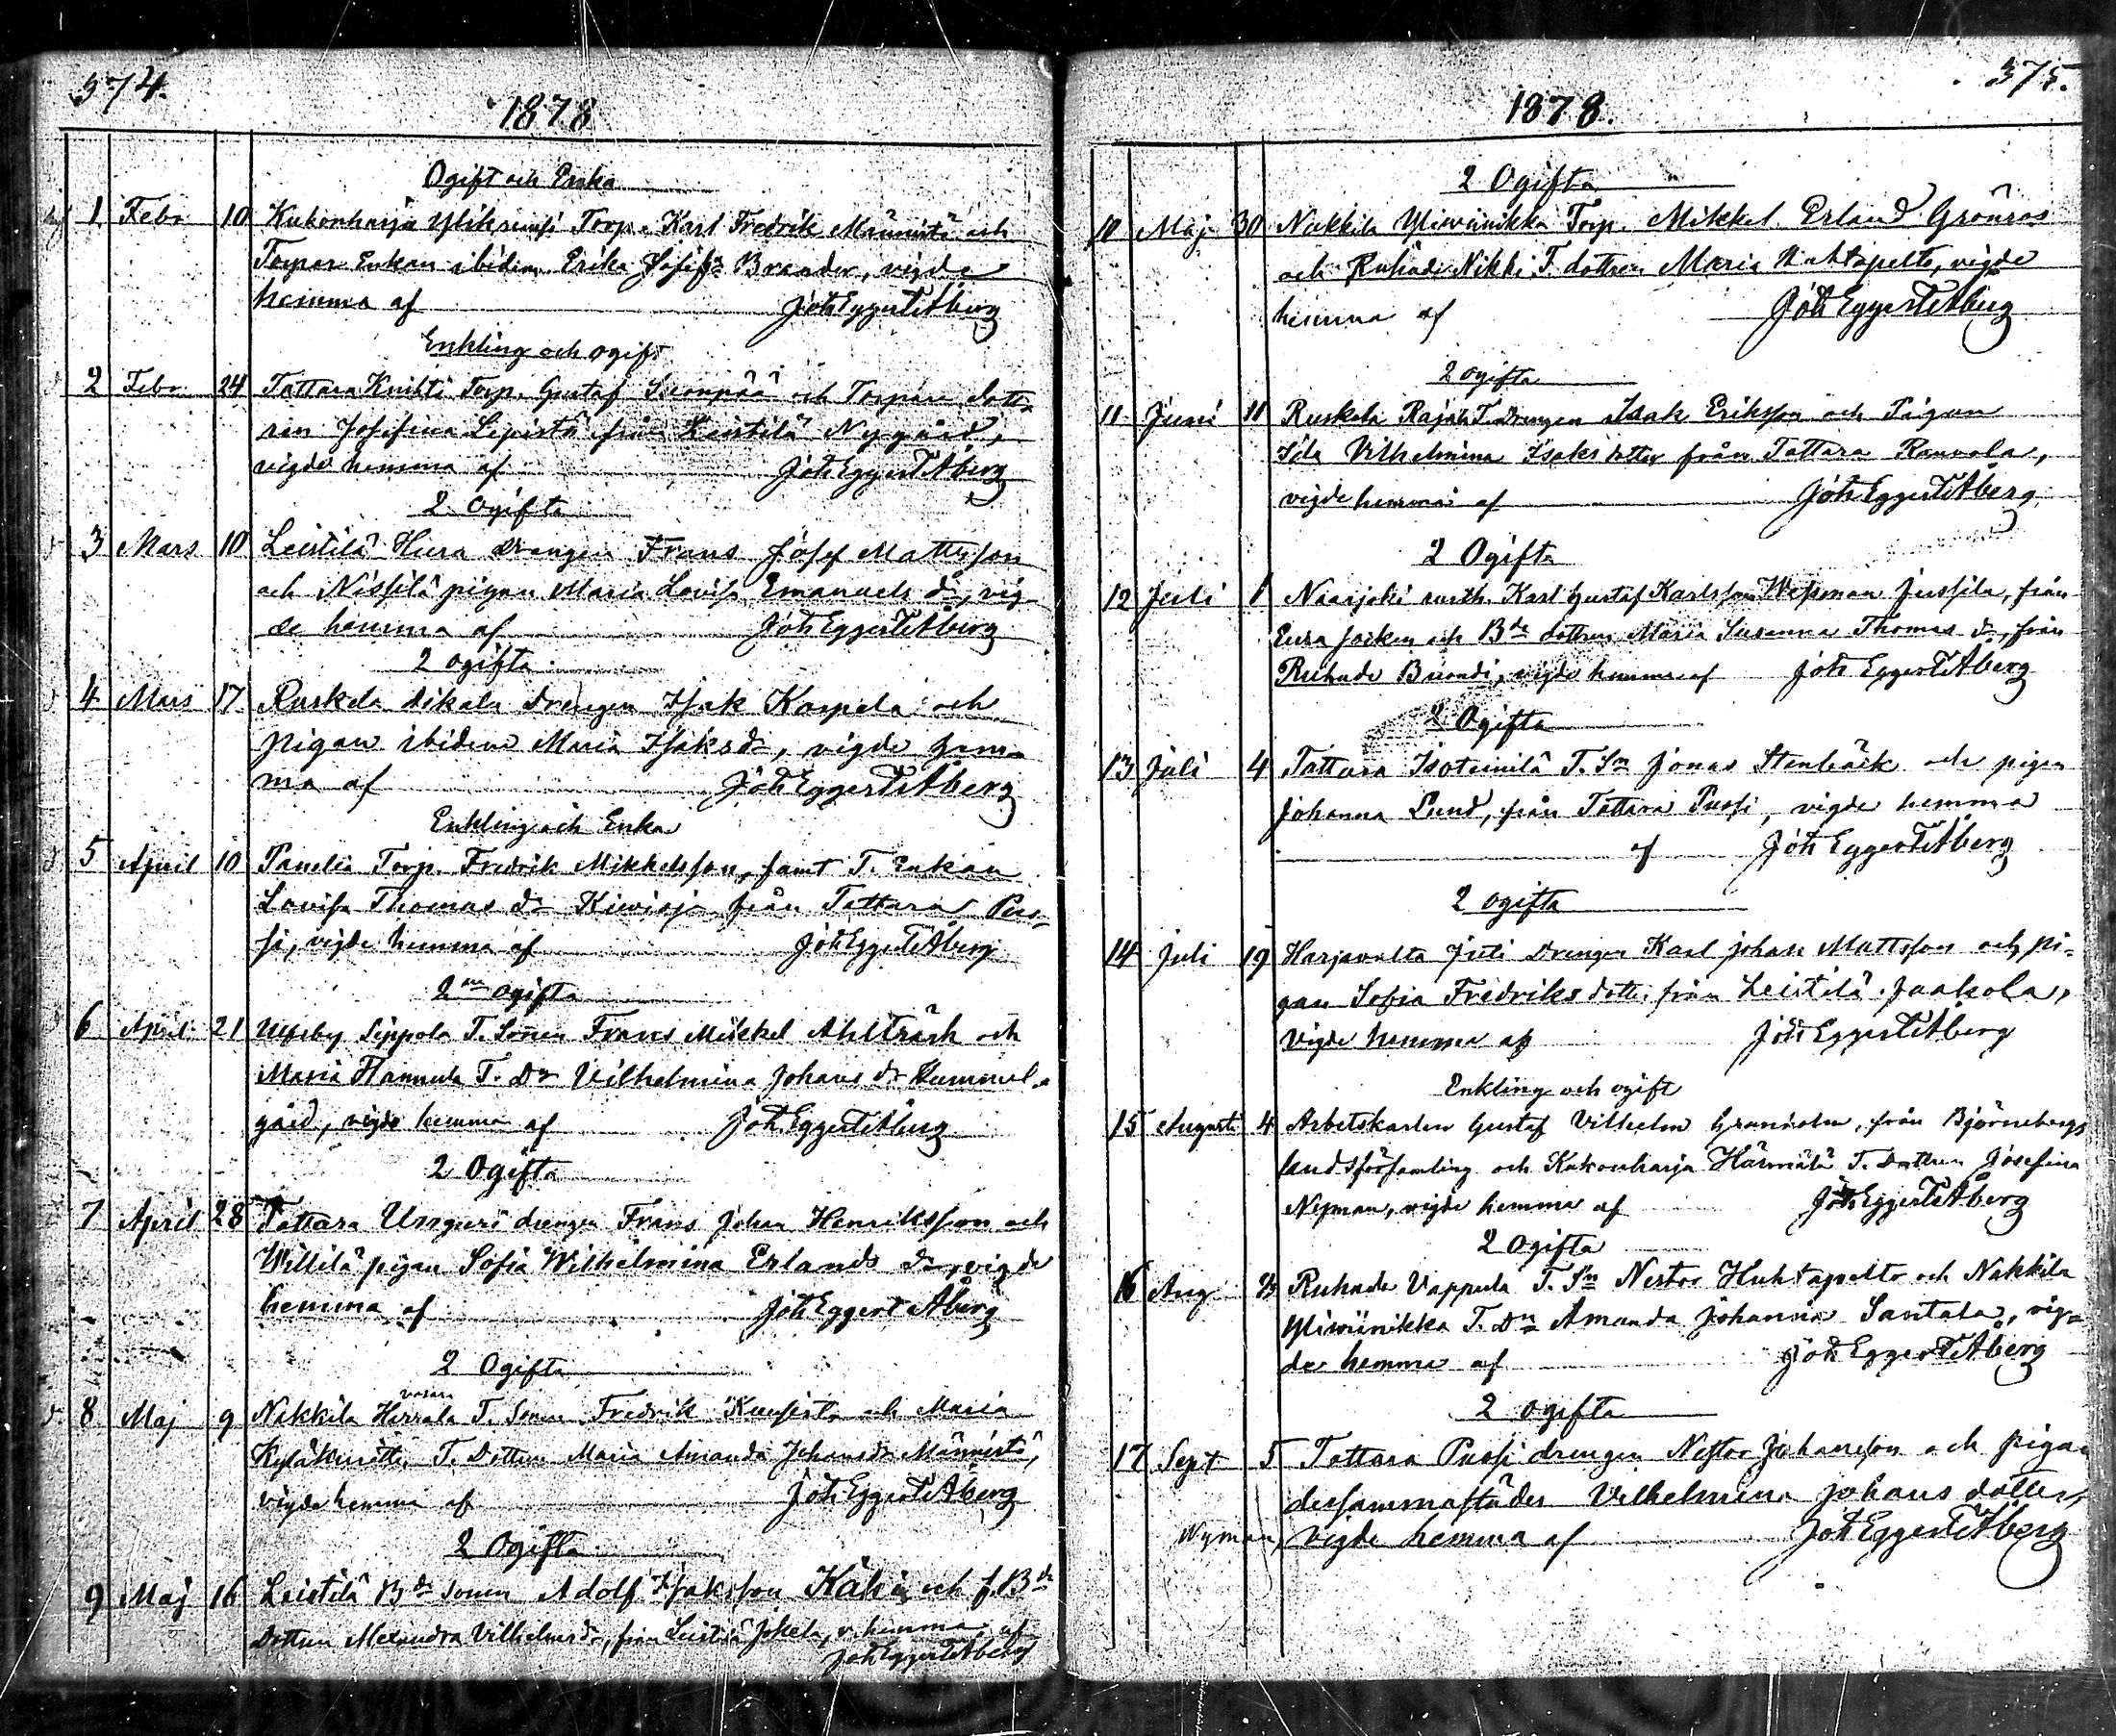 374.
1878
Ogift och Enka
1 Febr 10 Kukonharja Torp. Karl Fredrik Männistö och
Torpar Enkan ibidem Erika Josefs Brander, vigde
hemma af Joh Eggert Åberg
Enkling och ogift
2 Febr. 24 Tattara Knihti Torp. Gustaf och Torpare dott
ren Josefina Lepistö från Leistilä Nygård,
vigde hemma af Joh Eggert Åberg
2 Ogifta
3 Mars 10 Leistilä Hura drengen Frans Josef Mattsson
och Nissilä pigan Maria Lovisa Emanuels dr, vig
de hemma af Joh Eggert Åberg
2 ogifta
4 Mars 17 Ruskela drengen Isak Karpela och
pigan ibidem Maria Isaksdr, vigde hem
ma af Joh Eggert Åberg
Enkling och Enka
5 April 10 Panelia Torp. Fredrik Mikkelsson, samt T. Enkan
Lovisa Thomas dr Kivioja från Tattara Pus-
si, vigde hemma af Joh Eggert Åberg
2ne ogifta
6 April 21 Ulfsby Seppola T. Sonen Frans Mikkel Ahlträsk och
Masia Hannula T. Dr Vilhelmina Johans dr Hummel-
gård, vigde hemma af Joh Eggert Åberg
2 Ogifta
7 April 28 Tattara Unguri drengen Frans Johan Henriksson och
Willilä pigan Sofia Wilhelmina Erlands dr, vigde
hemma af Joh Eggert Åberg
2 Ogifta
8 Maj 9 Nakkila T. Sonen Fredrik och Masia
T. Dottren Maria Amanda Johansdr Männistö,
vigde hemma af Joh Eggert Åberg
2 Ogifta
9 Maj 16 Leistilä Bde sonen Adolf Isaksson och f. Bde
Dottren Alexandra Vilhelmsdr, från Leistilä Jokela, v. hemma af
Joh Eggert Åberg
375.
1878.
2 Ogifta
10 Maj 30 Nakkila Yliviinikka Torp. Mikkel Erland Grönros
och Ruhade Nikki T. dottren Maria Huhtapelto, vigde
hemma af Joh Eggert Åberg
2 ogifta
11 Juni 11 Ruskela T. Drengen Isak Eriksson och Pigan
Ida Vilhelmina Isaks dotter från Tattara Ranvola,
vigde hemma af Joh Eggert Åberg
2 Ogifta
12 Juli 1 Naarjoki Karl Gustaf Karlsson Jussila, från
Eura Socken och Bde dottren Maria Susanna Thomas dr, från
Ruhade, vigde hemma af Joh Eggert Åberg
2 Ogifta
13 Juli 4 Tattara Isoteinilä T. Sn Jonas Stenbäck och pigan
Johanna Lund, från Tattara Pussi, vigde hemma
af Joh Eggert Åberg
2 ogifta
14 Juli 19 Harjavalta Drengen Karl Johan Mattsson och pi-
gan Sofia Fredriks dotter från Leistilä Jaakola,
vigde hemma af Joh Eggert Åberg
Enkling och ogift
15 Augusti 4 Arbetskarlen Gustaf Vilhelm Granholm, från Björneborgs
landsförsamling och Kukonharja Härmälä T. Dottren Josefina
Nyman, vigde hemma af Joh Eggert Åberg
2 Ogifta
16 Aug Ruhade Vappula T. Sn Nestor Huhtapelto och Nakkila
Yliviinikka T. Dn Amanda Johanna Santala, vig-
de hemma af Joh Eggert Åberg
2 ogifta
17 Sept 5 Tattara Pussi drengen Nestor Johansson och pigan
dersammastädes Vilhelmina Johans dotter
Nyman, vigde hemma af Joh Eggert Åberg